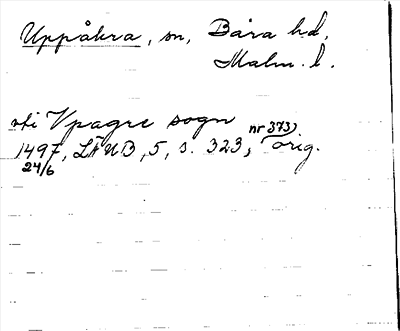 Uppåkra, sn, Bara hd,
Malm. l.
vti Vpagre sogn
nr 373)
1497, LÄUB, 5, s. 323, orig.
24/6